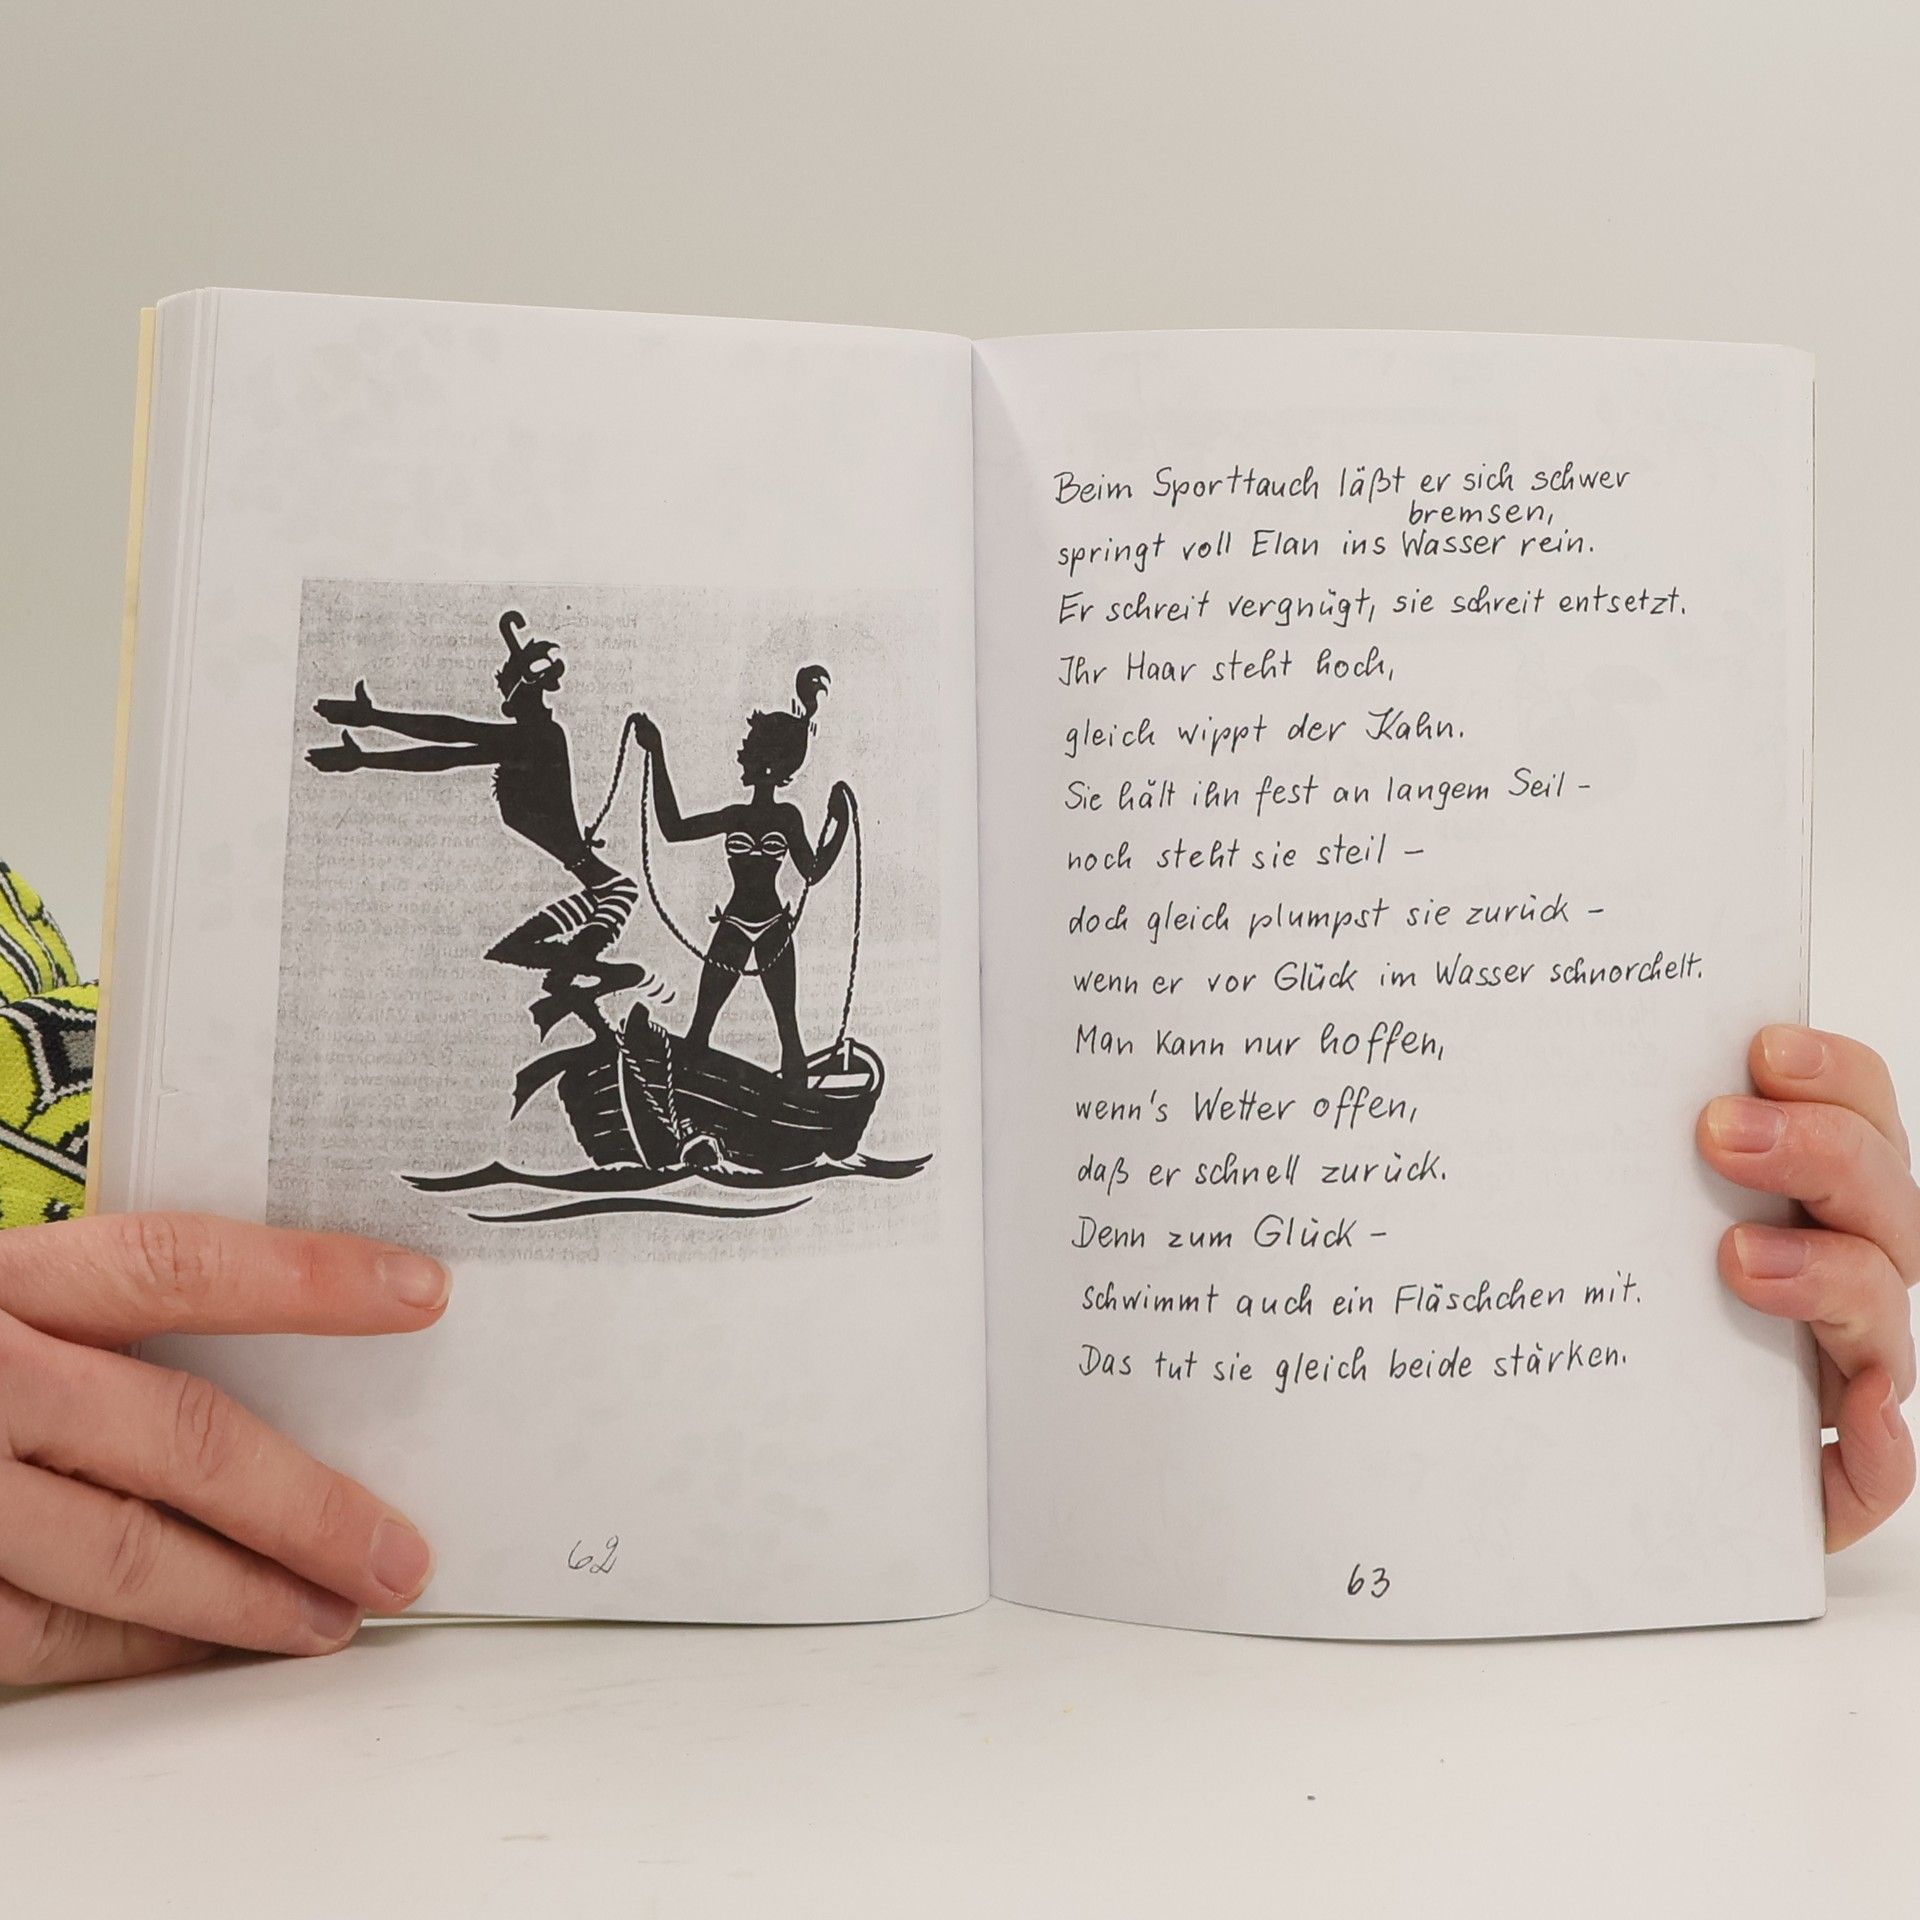 Beim Sporttauch läßt er sich schwer
bremsen,
springt voll Elan ins Wasser rein.
Er schreit vergnügt, sie schreit entsetzt.
Ihr Haar steht hoch,
gleich wippt der Kahn.
Sie hält ihn fest an langem Seil –
noch steht sie steil –
doch gleich plumpst sie zurück –
wenn er vor Glück im Wasser schnorchelt.
Man kann nur hoffen,
wenn's Wetter offen,
daß er schnell zurück.
Denn zum Glück –
schwimmt auch ein Fläschchen mit.
Das tut sie gleich beide stärken.
62
63